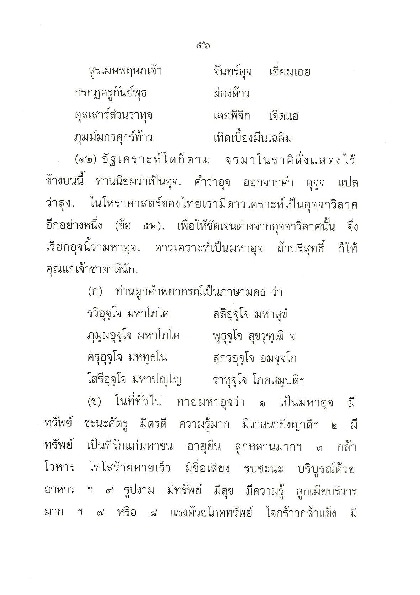 ๕๖
สุรเมษพฤษภเจ้า จันทร์อุจ เยี่ยมเอย
กรกฎครูกันย์พุธ ผ่องด้าว
ตุลเสาร์ส่วนราหุจ เลขพิจิก เจิดแฮ
ภุมม์มกรศุกร์ท้าว เทิดเบื้องมีนเฉลิม
(๔๒) อัฐเคราะห์ใดก็ตาม จรมาในราศีดังแสดงไว้
ข้างบนนี้ ท่านนิยมว่าเป็นอุจ. คำว่าอุจ ออกจากคำ อุจฺจ แปล
ว่าสูง. ในโหราศาสตร์ของไทยเรามีดาวเคราะห์เป็นอุจจาวิลาศ
อีกอย่างหนึ่ง (ข้อ ๕๒). เพื่อให้ชัดเจนต่างจากอุจจาวิลาศนั้น จึง
เรียกอุจนี้ว่ามหาอุจ. ดาวเคราะห์เป็นมหาอุจ ถ้าบริสุทธิ์ ก็ให้
คุณแก่เจ้าชาตาดีนัก.
(ก) ท่านผูกคำพยากรณ์เป็นภาษามคธ ว่า
รวิอุจฺโจ มหาโภโค สสิอุจฺโจ มหาสุขํ
ภุมฺมอุจฺโจ มหาโภโค พุธุจฺโจ สุขวฑฺฒิ จ
ครุอุจฺโจ มหทฺธโน สุกรอุจฺโจ
โสรีอุจฺโจ มหาปญฺโญ ราหุจฺโจ โภคสมฺปติฯ
(ข) ในที่ทั่วไป ทายมหาอุจว่า ๑ เป็นมหาอุจ มี
ทรัพย์ ชะนะศัตรู มิตรดี ความรู้มาก ฯ ๒ มี
ทรัพย์ เป็นที่รักแก่มหาชน อายุยืน ลูกหลานมากฯ ๓ กล้า
โวหาร มีชื่อเสียง รบชะนะ บริบูรณ์ด้วย
อาหาร ฯ ๔ รูปงาม มีทรัพย์ มีสุข มีความรู้ ลูกเมียบริวาร
มาก ฯ ๗ หรือ ๘ โภคทรัพย์ ใจกร้าวกล้าแข็ง มี